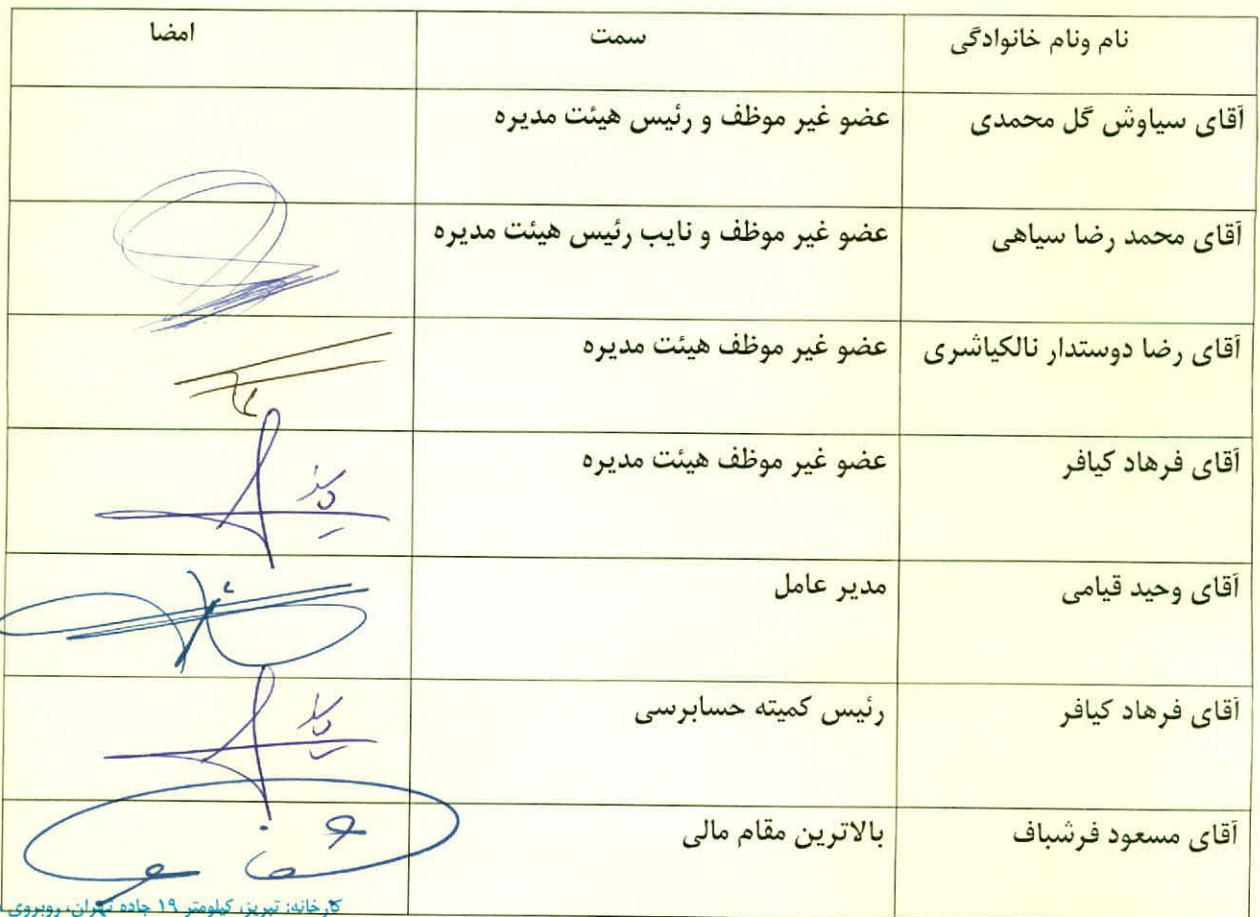 نام ونام خانوادگی سمت امضا
آقای سیاوش گل محمدی عضو غیر موظف و رئیس هیئت مدیره
آقای محمد رضا سیاهی عضو غیر موظف و نایب رئیس هیئت مدیره
آقای رضا دوستدار نالکیاشری عضو غیر موظف هیئت مدیره
آقای فرهاد کیافر عضو غیر موظف هیئت مدیره
آقای وحید قیامی مدیر عامل
آقای فرهاد کیافر رئیس کمیته حسابرسی
آقای مسعود فرشباف بالاترین مقام مالی
کارخانه: تبریز، کیلومتر ۱۹ جاده تهران، روبروی